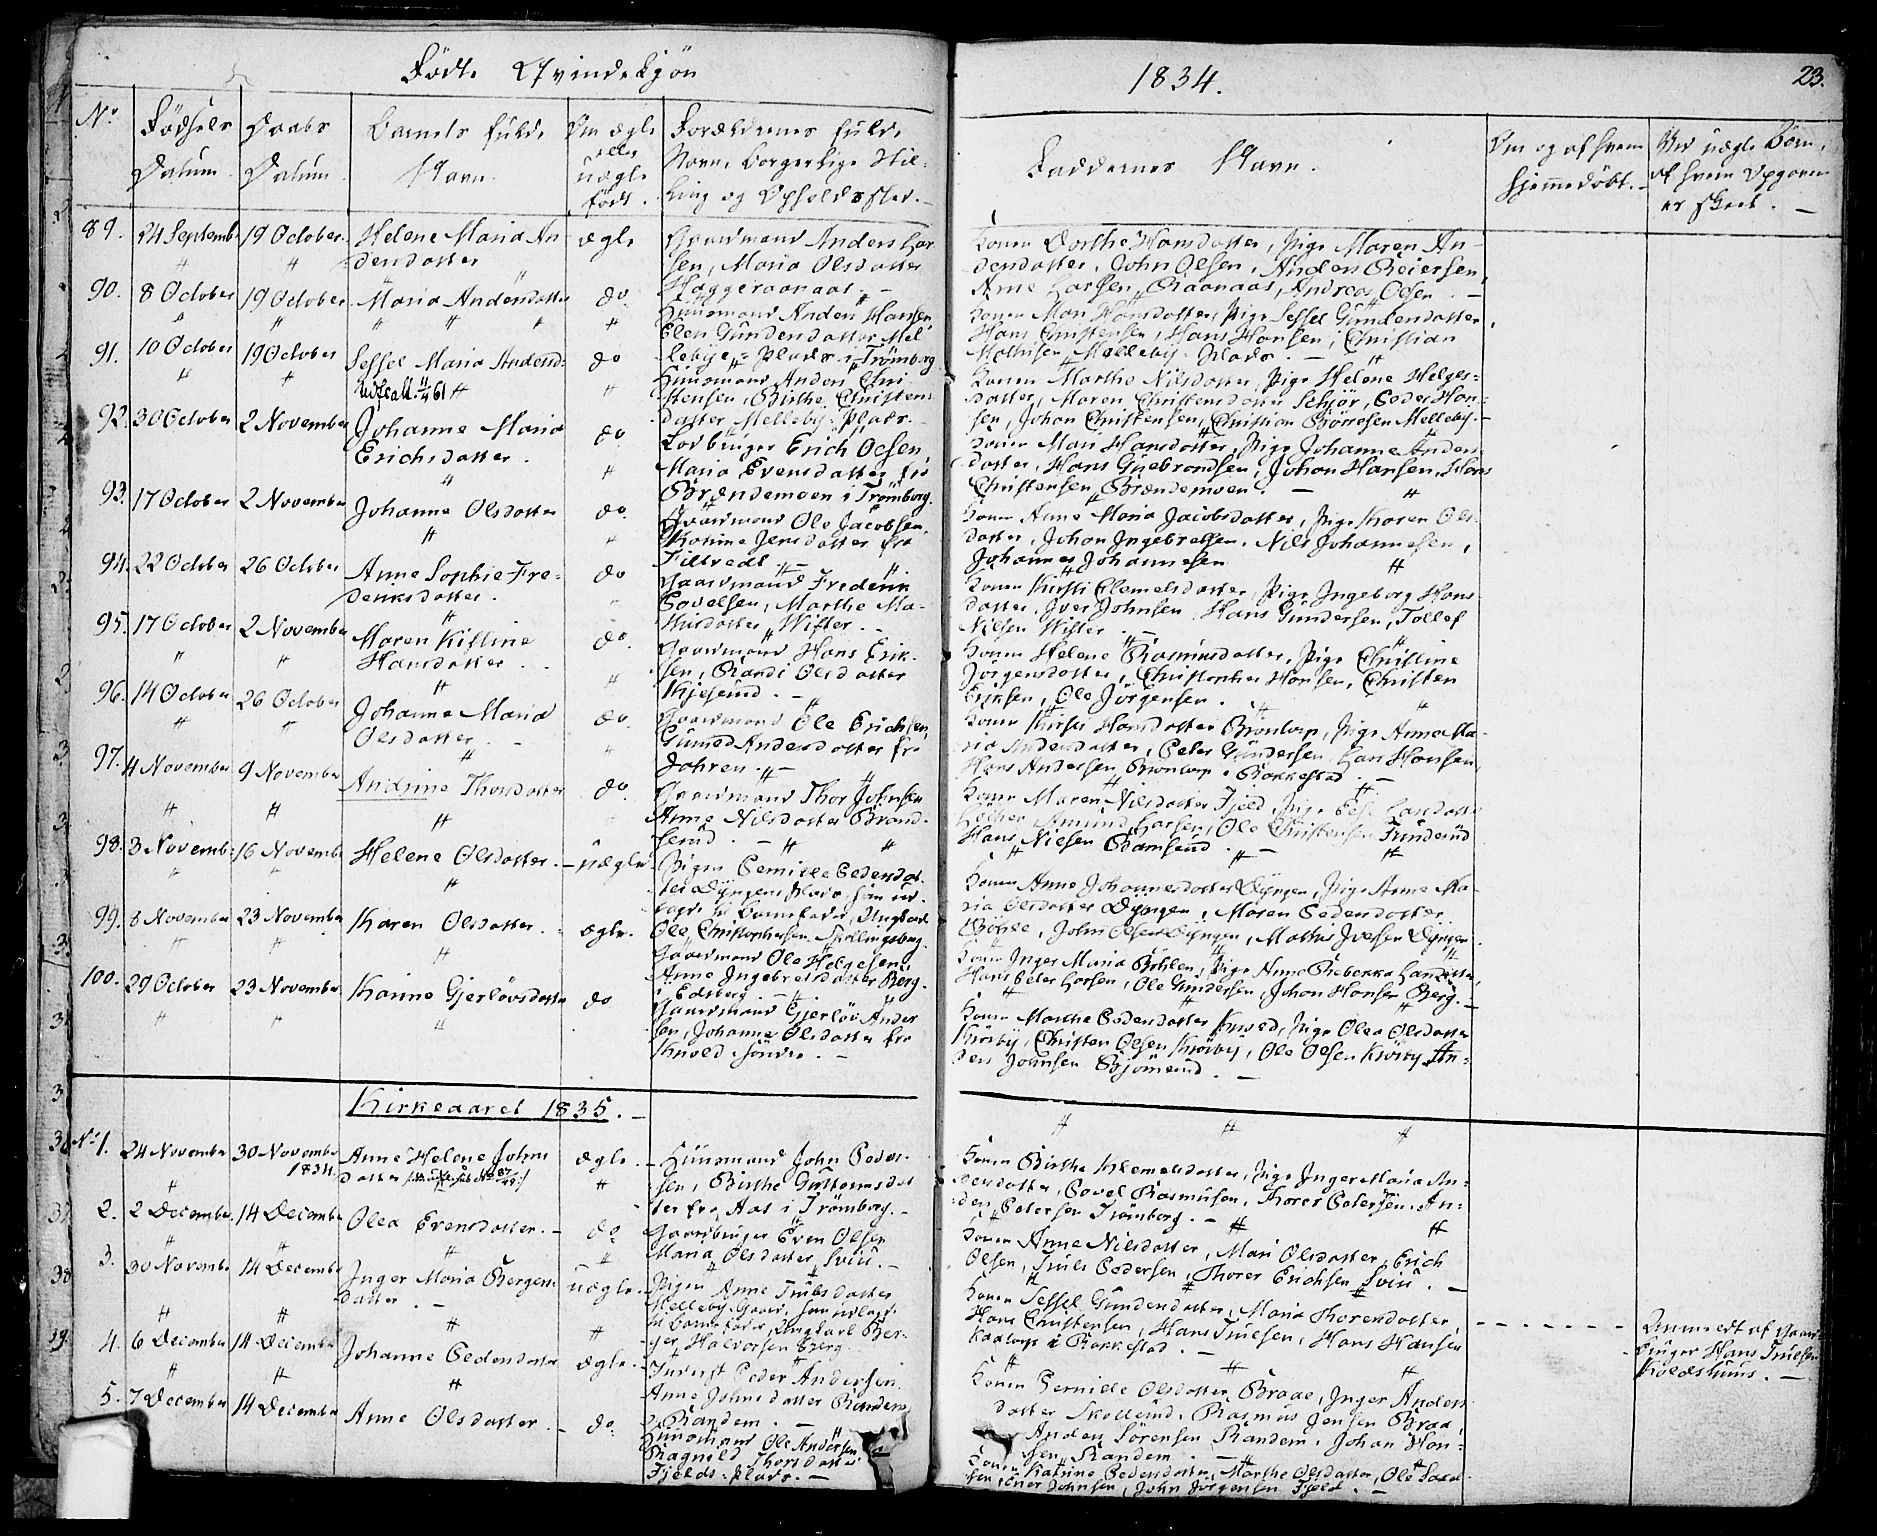 Födte Qvindekjön
1834.
23.
No
Födsels Datum
Daabs Datum
Barnets fulde Navn
Om ægte eller uægte födt.
Forældrenes fulde Navn, borgerlige Stilling og Opholdssted.
Faddernes Navn.
Om og af hvem hjemmedöbt.
Ved uægte Börn, af hvem Opgaven er skeet.
89. 24 Septemb 19 October Helene Maria An- ægte Gaardmand Anders Lar-
dersdatter sen, Maria Olsdatter
Haggeraanaas.
Konen Dorthe Hansdatter, Pige Maren An-
dersdatter, John Olsen, Anders Reiersen,
Arne Larsen Raanaas, Andreas Olsen.
90. 8 October 19 October Maria Andersdatter do Huusmand Anders Hansen,
Elen Gundersdatter Mel-
lebye-Plads i Trömborg
Konen Mari Hansdatter, Pige Sessel Gundersdatter,
Hans Christensen, Hans Hansen, Christian
Mathisen Mellebÿ-Plads.
91. 10 October 19 October Sessel Maria Andersd: do Huusmand Anders Chri-
stensen, Birthe Christens-
datter Mellebÿ-Plads.
Konen Marthe Nilsdatter, Pige Helene Helges-
datter, Maren Christensdatter, Peder Han-
sen, Johan Christensen, Christian Börresen Mellebÿ.
92. 30 October 2 November Johanne Maria do
Erichsdatter.
Erich Olsen,
Maria Evensdatter fra
Brændemoen i Trömborg.
Konen Mari Hansdatter, Pige Johanne Anders-
datter, Hans Gulbrandsen, Johan Hansen, Hans
Christensen Brændemoen.
93. 17 October 2 November Johanne Olsdatter do. Gaardmand Ole Jacobsen,
Karine Jensdatter fra
Konen Anne Maria Jacobsdatter, Pige Karen Ols-
datter, Johan Ingebretsen, Nils Johannesen,
Johannes Johannesen
94. 22 October 26 October Anne Sophie Fre- do Gaardmand Frederik
deriksdatter. Povelsen, Marthe Ma-
Wister.
Konen Kirsti Clemetsdatter, Pige Ingeborg Hans-
datter, Iver Johnsen, Hans Gundersen, Tollef
Nilsen Wister.
95. 17 October 2 November Maren Kistine do. Gaardmand Hans Erik-
Hansdatter. sen, Randi Olsdatter
Kjeserud.
Konen Helene Rasmusdatter, Pige Christine
Jörgensdatter, Christopher Hansen, Christen
Eriksen, Ole Jörgensen.
96. 14 October 26 October Johanne Maria do. Gaardmand Ole Erichsen,
Olsdatter. Gunild Andersdatter fra
Jahren.
Konen Kirsti Hansdatter Bröntorp, Pige Anne Ma-
ria Andersdatter, Peter Gundersen, Lars Hansen,
Hans Andersen Bröntorp i Rakkestad.
97. 4 November 9 November Andrine Thorsdatter do. Gaardmand Thor Johnsen
Anne Nilsdatter Brand-
serud.
Konen Maren Nilsdatter Fjeld, Pige
Amund Larsen, Ole Christensen
Hans Nielsen Ramserud.
98. 3 Novemb: 16 Novemb Helene Olsdatter. uægte Pigen Pernille Pedersdat-
ter Dÿngen Plads som ud-
lagde til Barnefader Ungkarl
Ole Christophersen Spillingsberg.
Konen Anne Johannesdatter Dÿngen, Pige Anne Ma-
ria Olsdatter Dyngen, Maren Pedersdatter
Böhle, John Olsen Dyngen, Mathis Iversen Dyngen.
99. 8 November 23 November Karen Olsdatter. ægte. Gaardmand Ole Helgesen,
Anne Ingebretsdatter Berg.
i Edsberg.
Konen Inger Maria Böhlen, Pige Anne Rebekka
Hans Peter Larsen, Ole Gundersen, Johan Hansen Berg.
100. 29 October 23 November Karine Gjerlövsdatter do Gaardmand Gjerlöv Ander-
sen, Johanne Olsdatter fra
Knold söndre.
Konen Marthe Pedersdatter Knold, Pige Olea Olsdatter
Kröiby, Christen Olsen Kröiby, Ole Olsen Kröiby, An-
ders Johnsen Bjömerud.
Kirkeaaret 1835.
No 1. 24 November 30 November 1834. Anne Helene Johns- ægte. Huusmand John Peder-
datter sen, Birthe Guttormsdat-
ter fra Aas i Trömborg.
Konen Birthe Klemetsdatter, Pige Inger Maria An-
dersdatter, Povel Rasmusen, Thorer Petersen, An-
ders Petersen Trömborg.
2. 2 December 14 December Olea Evensdatter. do Gaardbruger Even Olsen
Maria Olsdatter, Sviu.
Konen Anne Nilsdatter, Mari Olsdatter, Erich
Olsen, Truls Pedersen, Thorer Erichsen Sviu.
3. 30 Novembr 14 December Inger Maria Bergers- uægte. Pigen Anne Trulsdatter
datter. Mellebÿ-Gaard, som udlagde
til Barnefader Ungkarl Ber-
ger Halvorsen Berg.
Konen Sessel Gundersdatter, Maria Thorersdatter,
Hans Christensen, Hans Truelsen, Hans Hansen
Kaatorp i Rakkestad.
Anmeldt af Gaard-
bruger Hans Truelsen
Koldshuus.
4. 6 December 14 December Johanne Pedersdatter ægte. Inderst Peder Andersen
Anne Johnsdatter Randem
Randem.
Konen Pernille Olsdatter Braae, Inger Anders-
datter Skollerud, Rasmus Jensen Braa,
Anders Sörensen Randem, Johan Han-
sen Randem.
5. 7 December 14 December Anne Olsdatter. do. Huusmand Ole Andersen
Ragnild Thorsdatter
Fjelds-Plads.
Konen Katrine Pedersdatter, Marthe Olsdatter, Ole
Iver Johnsen, John Jörgensen Fjeld.